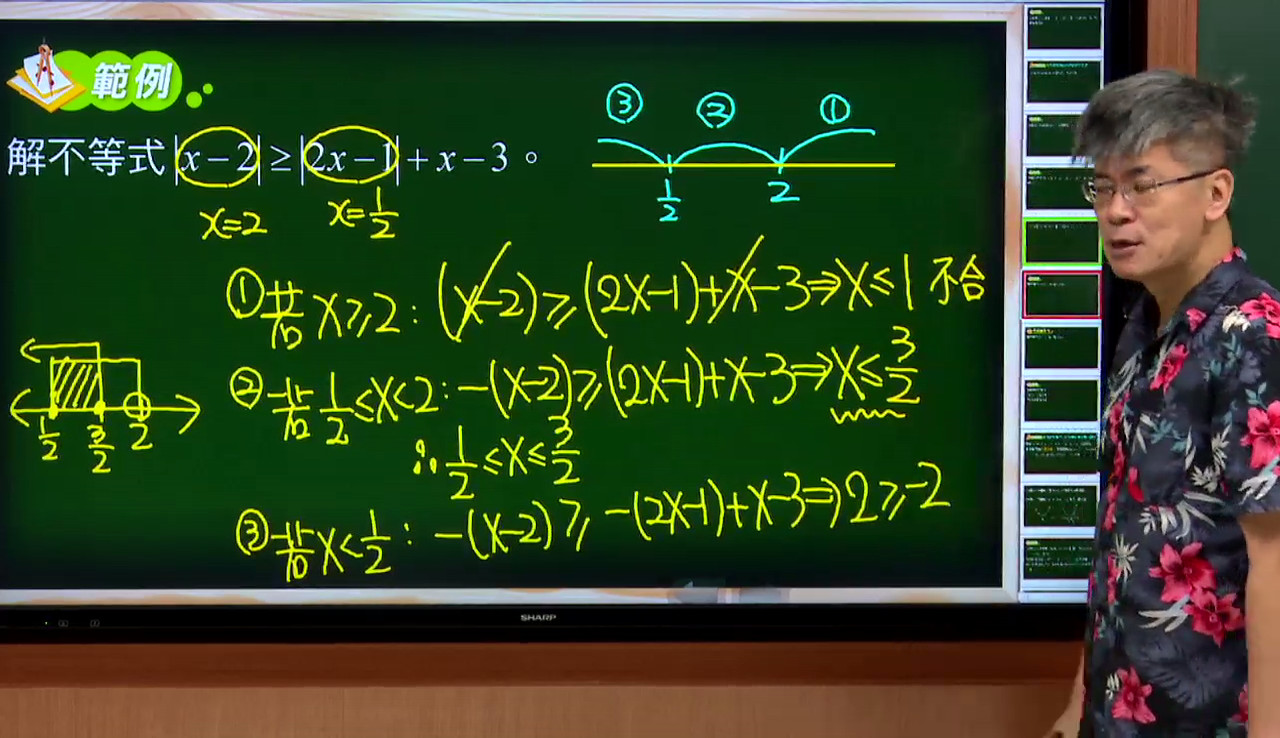 範例
解不等式 |x-2| ≥ |2x-1| + x-3。
x=2
x=1/2
③ ② ①
1/2 2
①若x≥2: (x-2)≥(2x-1)+x-3⇒x≤1 不合
②若1/2≤x<2: -(x-2)≥(2x-1)+x-3⇒x≤3/2
∴ 1/2≤x≤3/2
1/2 3/2 2
③若x<1/2: -(x-2)≥-(2x-1)+x-3⇒2≥-2
SHARP